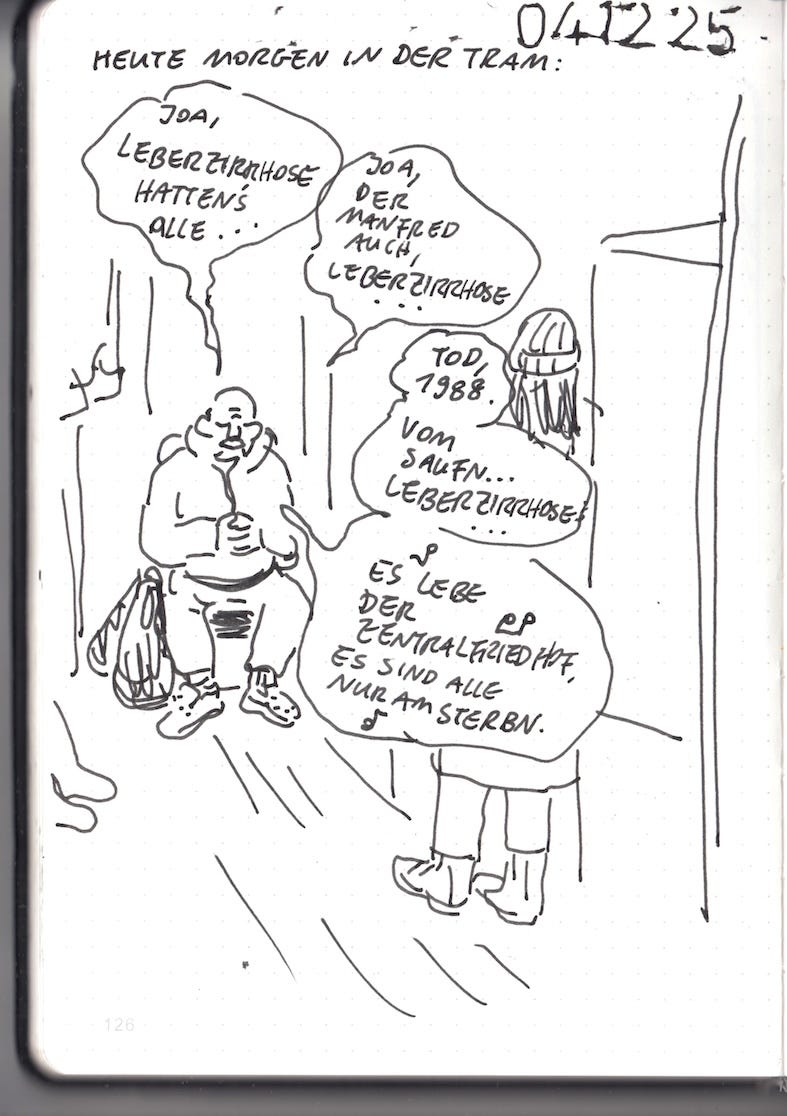 04.12.25
HEUTE MORGEN IN DER TRAM:
JOA,
LEBERZIRRHOSE
HATTEN'S
ALLE...
JOA,
DER
MANFRED
AUCH,
LEBERZIRRHOSE
...
TOD,
1988.
VOM
SAUFN...
LEBERZIRRHOSE!
...
ES LEBE
DER
ZENTRALFRIEDHOF,
ES SIND ALLE
NUR AM STERBN.
126